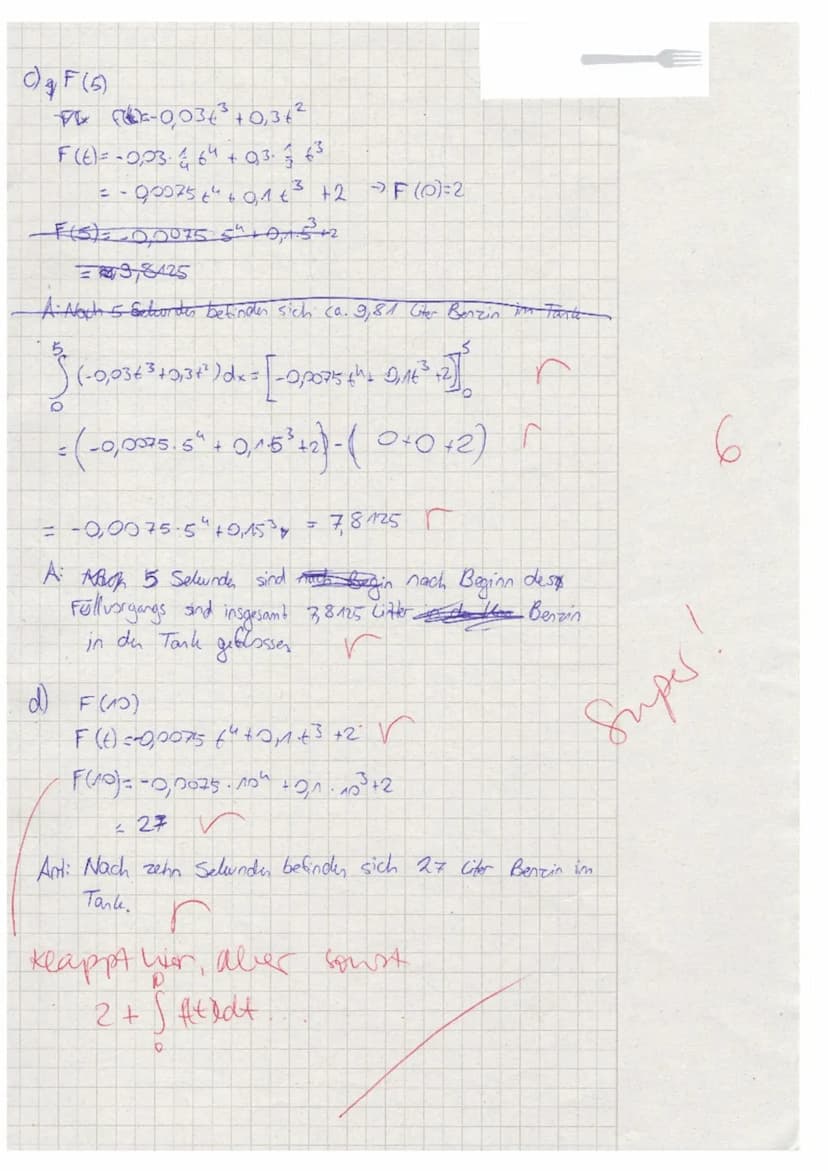 c) F(5)
f(t)=-0,03t³ + 0,3t²
F(t) = -0,03 · ¼ t⁴ + 0,3 · ⅓ t³
= -0,0075 t⁴ + 0,1 t³ +2 → F(0)=2
F(5)= -0,0075 · 5⁴ + 0,1 · 5³ +2
= 9,8125
A: Nach 5 Sekunden befinden sich ca. 9,81 Liter Benzin im Tank
5
∫ (-0,03t³+0,3t²)dx = [-0,0075t⁴ + 0,1t³ +2]⁵₀
0
= (-0,0075 · 5⁴ + 0,1·5³ +2) - ( 0+0+2)
6
= -0,0075·5⁴ + 0,15³ = 7,8125
A: 5 Sekunden sind nach Beginn des
Füllvorgangs sind insgesamt 7,8125 Litter Benzin
in den Tank geflossen
Super!
d) F(10)
F(t)=-0,0075 t⁴ + 0,1 t³ +2
F(10)= -0,0075 · 10⁴ + 0,1 · 10³ +2
= 27
Ant: Nach zehn Sekunden befinden sich 27 Liter Benzin im
Tank.
klappt hier, aber sonst
10
2 + ∫ f(t)dt ...
0